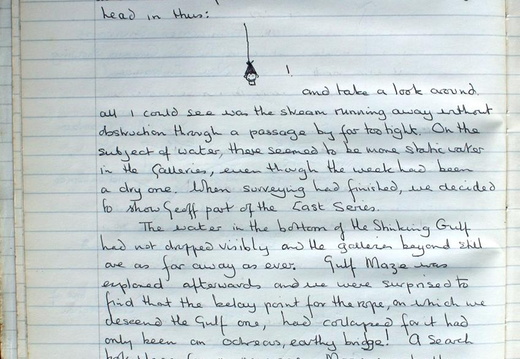 head in thus:
!
and take a look around.
all I could see was the stream running away without
obstruction through a passage by far too tight. On the
subject of water, there seemed to be more static water
in the Galleries, even though the week had been
a dry one. When surveying had finished, we decided
to show Geoff part of the East Series.
The water in the bottom of the Stinking Gulf
had not dropped visibly and the galleries beyond still
are as far away as ever. Gulf Maze was
explored afterwards and we were surprised to
find that the belay point for the rope, on which we
descend the Gulf ons, had collapsed for it had
only been an ochreous, earthy bridge! A search